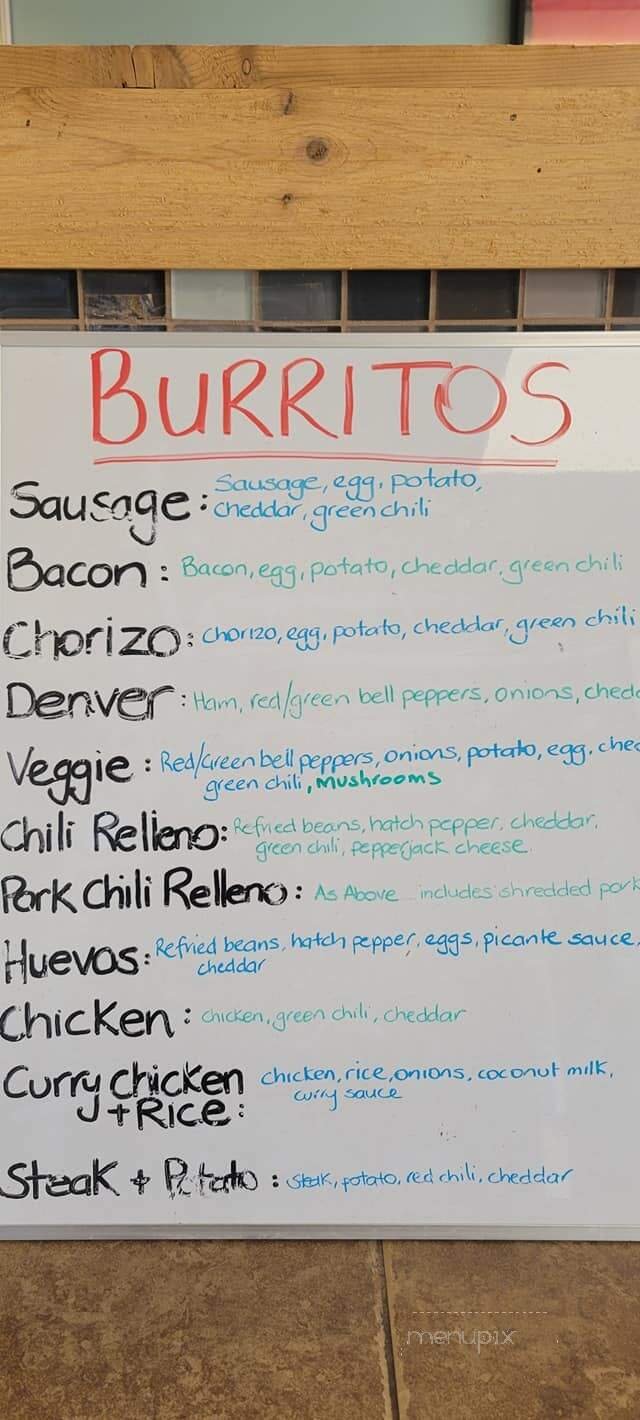 BURRITOS
Sausage: Sausage, egg, potato,
cheddar, green chili
Bacon: Bacon, egg, potato, cheddar, green chili
Chorizo: chorizo, egg, potato, cheddar, green chili
Denver: Ham, red/green bell peppers, onions, chedd
Veggie: Red/Green bell peppers, onions, potato, egg, ched
green chili, mushrooms
Chili Relleno: Refried beans, hatch pepper, cheddar,
green chili, pepperjack cheese.
Pork Chili Relleno: As Above includes shredded pork
Huevos: Refried beans, hatch pepper, eggs, picante sauce,
cheddar
Chicken: chicken, green chili, cheddar
Curry chicken chicken, rice, onions, coconut milk,
+ Rice: curry sauce
Steak + Potato: steak, potato, red chili, cheddar
menupix